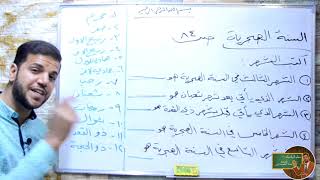 بسم الله الرحمن الرحيم
السنة الهجرية ص ٨٤
أكتب الشهر
١ الشهر الثالث في السنة الهجرية هو
٢ الشهر الذي يأتي بعد شهر شعبان هو
٣ الشهر الذي يأتي قبل شهر ذي القعدة هو
٤ الشهر الخامس في السنة الهجرية هو
الشهر التاسع في السنة الهجرية هو
١. محرم
٢. صفر
٣. ربيع الأول
٧. رجب
٨. شعبان
٩. رمضان
١٠. شوال
١١. ذو القعدة
١٢. ذو الحجة